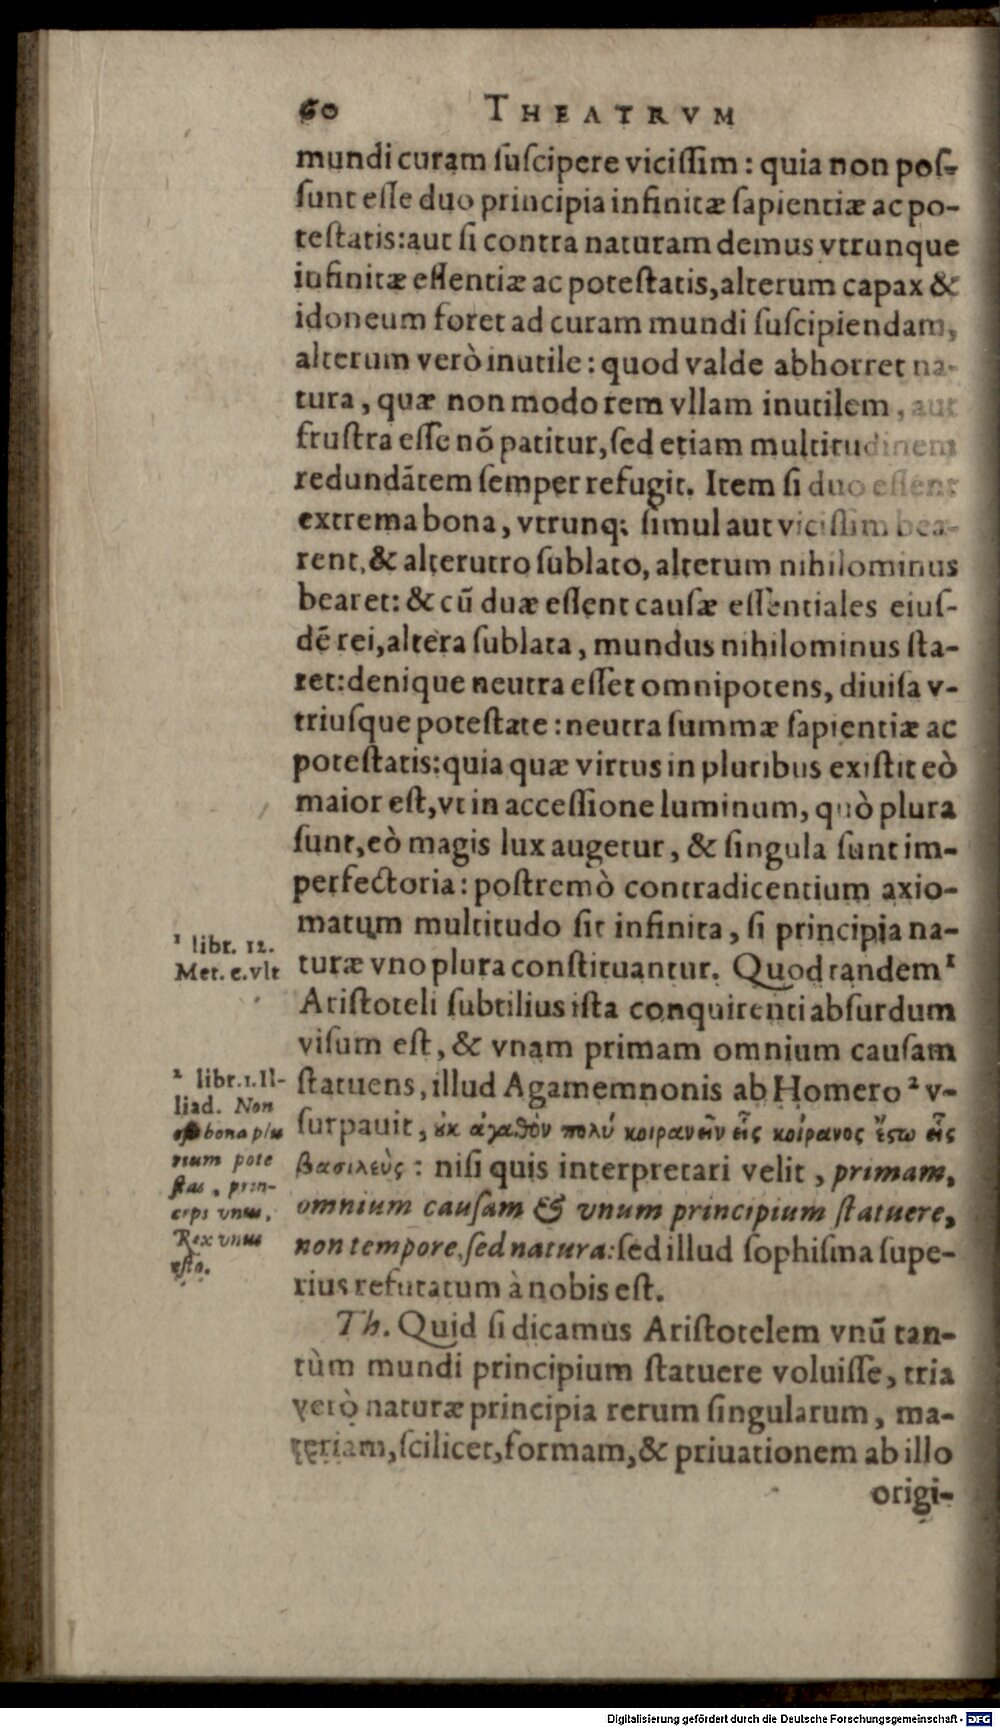 60 THEATRVM
mundi curam ſuſcipere viciſſim: quia non poſ-
ſunt eſſe duo principia infinitæ ſapientiæ ac po-
teſtatis: aut ſi contra naturam demus vtrunque
infinitæ eſſentiæ ac poteſtatis, alterum capax &
idoneum foret ad curam mundi ſuſcipiendam,
alterum verò inutile: quod valde abhorret na-
tura, quæ non modo rem vllam inutilem, aut
fruſtra eſſe nō patitur, ſed etiam multitudinem
redundātem ſemper refugit. Item ſi duo eſſent
extrema bona, vtrunq; ſimul aut viciſſim bea-
rent, & alterutro ſublato, alterum nihilominus
bearet: & cū duæ eſſent cauſæ eſſentiales eiuſ-
dē rei, altera ſublata, mundus nihilominus ſta-
ret: denique neutra eſſet omnipotens, diuiſa v-
triuſque poteſtate: neutra ſummæ ſapientiæ ac
poteſtatis: quia quæ virtus in pluribus exiſtit eò
maior eſt, vt in acceſſione luminum, quò plura
ſunt, eò magis lux augetur, & ſingula ſunt im-
perfectoria: poſtremò contradicentium axio-
matum multitudo ſit infinita, ſi principia na-
turæ vno plura conſtituantur. Quod tandem ¹
Ariſtoteli ſubtilius iſta conquirenti abſurdum
viſum eſt, & vnam primam omnium cauſam
ſtatuens, illud Agamemnonis ab Homero ² v-
ſurpauit, ȣκ ἀγαθὸν πολὺ κοιρανεῖν εἷς κοίρανος ἔστω εἷς
βασιλεὺς: niſi quis interpretari velit, primam,
omnium cauſam & vnum principium ſtatuere,
non tempore, ſed natura: ſed illud ſophiſma ſupe-
rius refutatum à nobis eſt.
Th. Quid ſi dicamus Ariſtotelem vnū tan-
tùm mundi principium ſtatuere voluiſſe, tria
verò naturæ principia rerum ſingularum, ma-
teriam, ſcilicet, formam, & priuationem ab illo
origi-
¹ libr. 12.
Met. c. vlt
² libr. 1. Il-
liad. Non
eſt bona plu
rium pote
ſtas, prin-
ceps vnus,
Rex vnus
eſto.
Digitalisierung gefördert durch die Deutsche Forschungsgemeinschaft - DFG